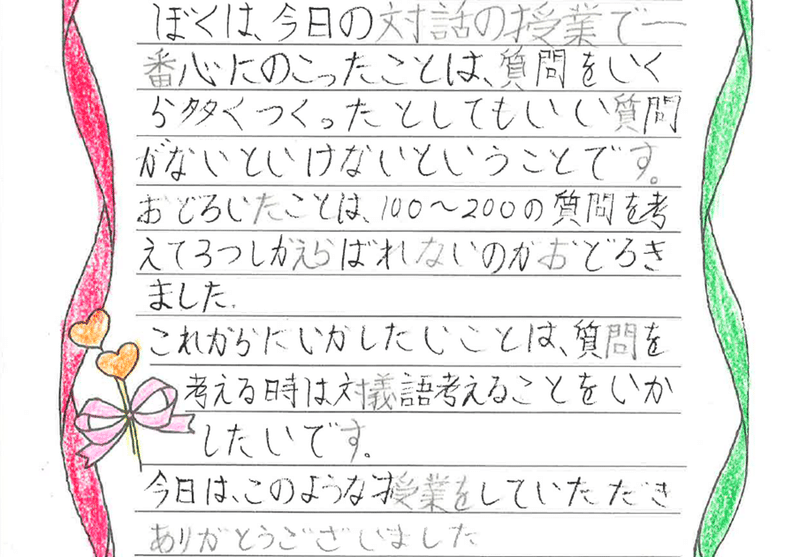 ぼくは、今日の対話の授業で一
番心にのこったことは、質問をいく
ら多くつくったとしてもいい質問
がないといけないということです。
おどろいたことは、100〜200の質問を考
えて3つしかえらばれないのがおどろき
ました。
これからにいかしたいことは、質問を
考える時は対義語考えることをいか
したいです。
今日は、このような授業をしていただき
ありがとうございました